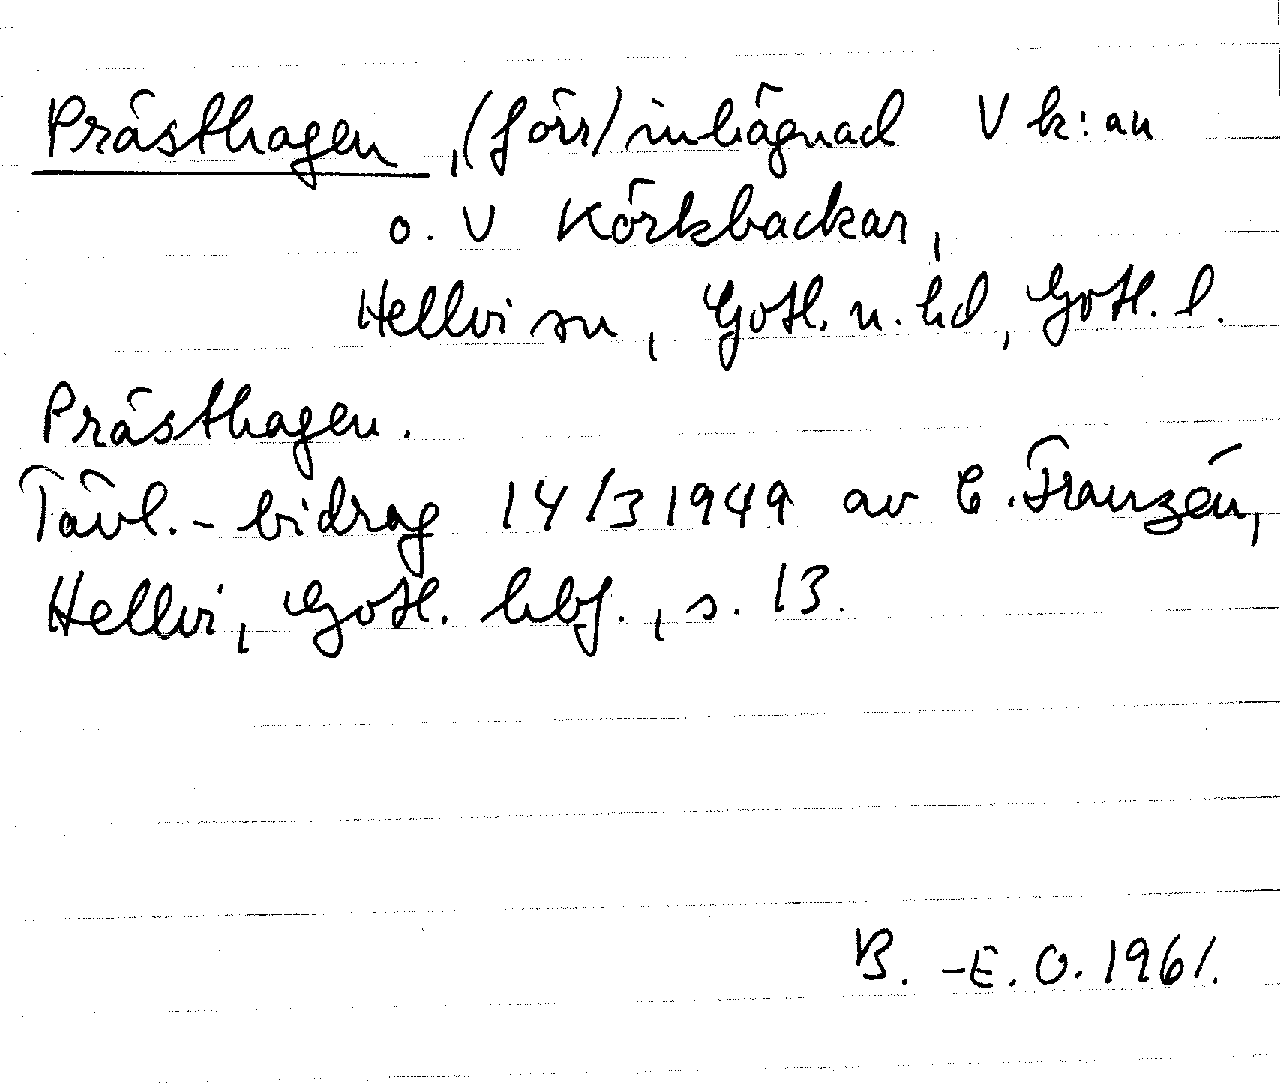 Prästhagen, (förr) inhägnad V k:an
o. V Körkbackar,
Hellvi sn, Gotl. n. hd, Gotl. l.
Prästhagen.
Tävl.-bidrag 14/3 1949 av C. Franzén,
Hellvi, Gotl. hbf., s. 13.
B.-E. O. 1961.